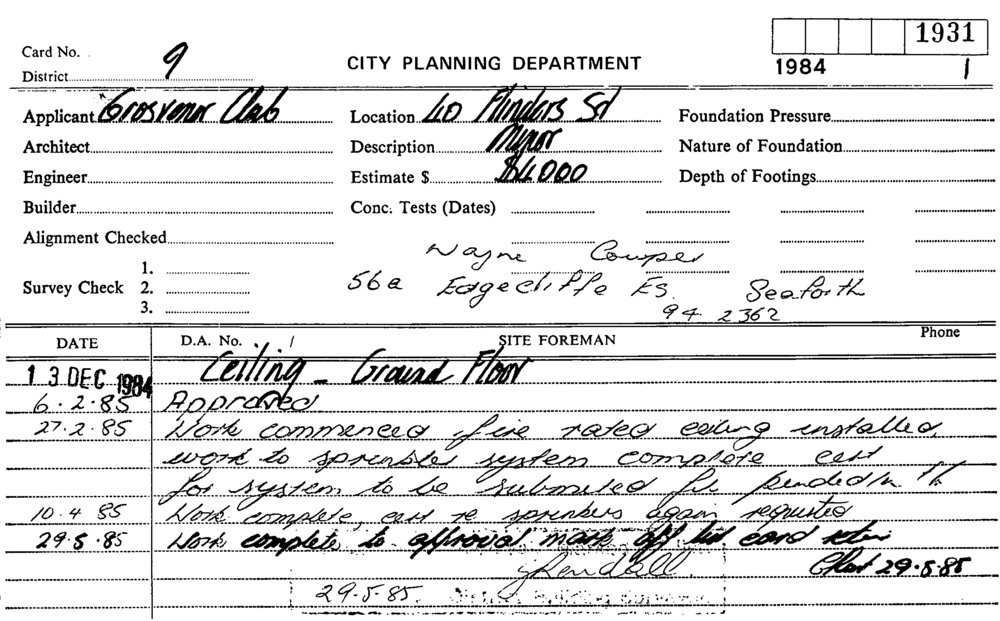 1931
Card No. 9
CITY PLANNING DEPARTMENT
1984 1
District
Applicant Grosvenor Club Location 40 Flinders St Foundation Pressure
Architect Description Minor Nature of Foundation
Engineer Estimate $ $4000 Depth of Footings
Builder Conc. Tests (Dates)
Alignment Checked
Wayne Cowper
1.
Survey Check 2. 56a Edgecliffe Es. Seaforth
3. 94 2362
DATE D.A. No. / SITE FOREMAN Phone
13 DEC 1984 Ceiling - Ground Floor
6.2.85 Approved
27.2.85 Work commenced fire rated ceiling installed,
work to sprinkler system complete cert
for system to be submited
10.4.85 Work complete, cert re sprinkers again requested
29.5.85 Work complete to approval mark off list card
29.5.85
29.5.85. Building